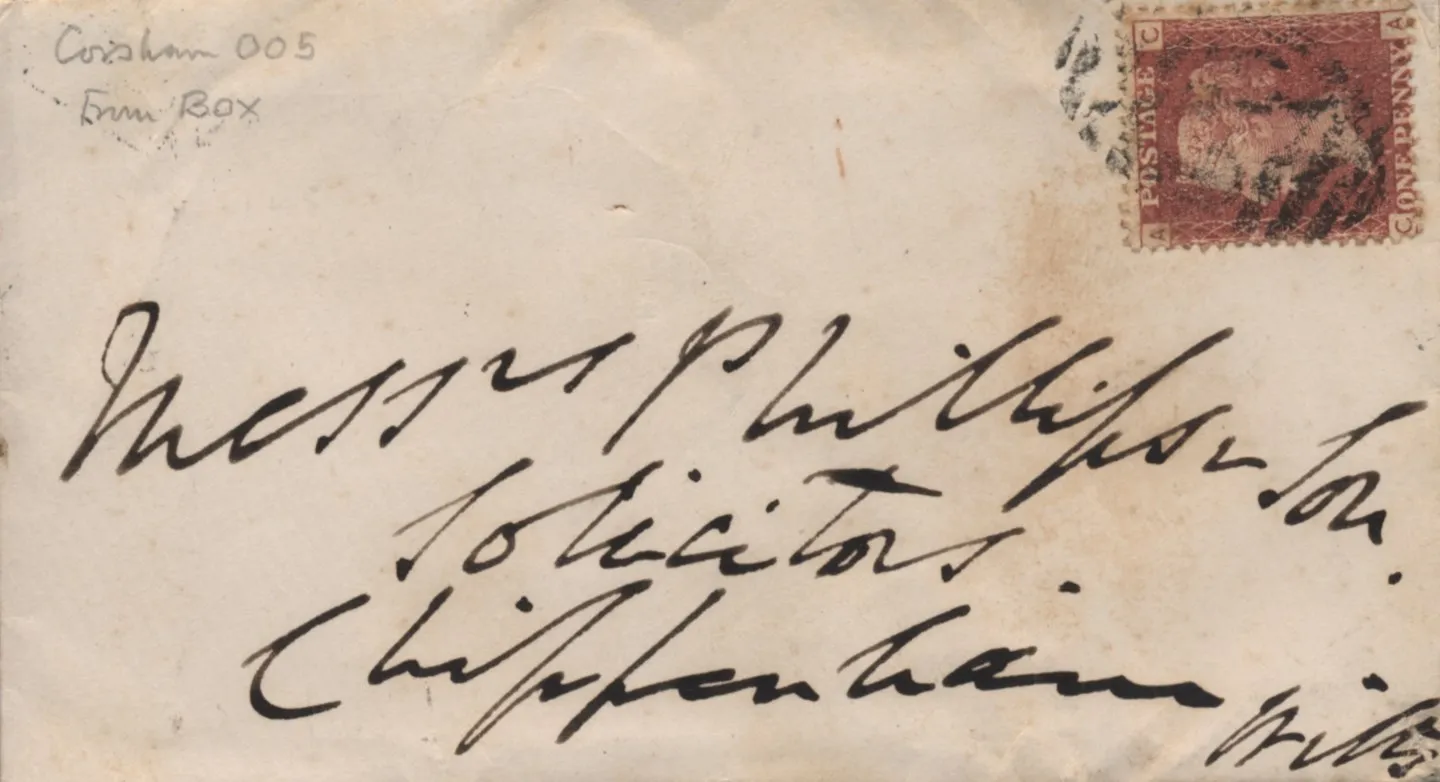 Corsham 005
From Box
C A
POSTAGE
ONE PENNY
A C
Messrs Phillips & Son.
Solicitors.
Chippenham
Wilts